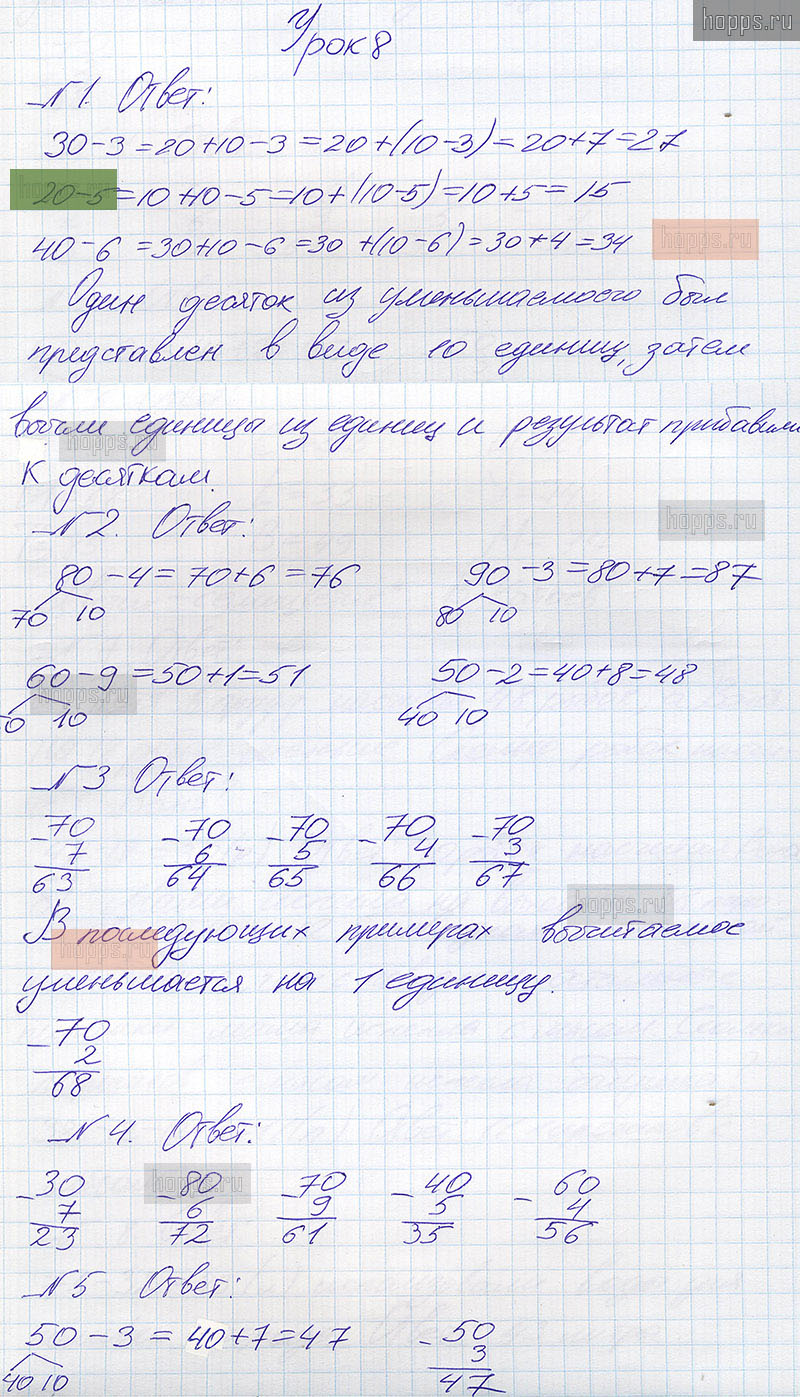 hopps.ru
Урок 8
№1. Ответ:
30-3=20+10-3=20+(10-3)=20+7=27
20-5=10+10-5=10+(10-5)=10+5=15
hopps.ru
40-6=30+10-6=30+(10-6)=30+4=34
hopps.ru
Один десяток из уменьшаемоего был
представлен в виде 10 единиц, затем
вычли единицы из единиц и результат прибавили
hopps.ru
к десяткам.
№2. Ответ:
hopps.ru
80-4=70+6=76 90-3=80+7=87
70 10 80 10
60-9=50+1=51 50-2=40+8=48
hopps.ru
0 10 40 10
№3 Ответ:
-70 -70 -70 -70 -70
7 6 5 4 3
63 64 65 66 67
hopps.ru
В последующих примерах вычитаемое
hopps.ru
уменьшается на 1 единицу.
-70
2
68
№4. Ответ:
hopps.ru
-30 -80 -70 -40 -60
7 6 9 5 4
23 72 61 35 56
№5 Ответ:
50-3=40+7=47 -50
40 10 3
47